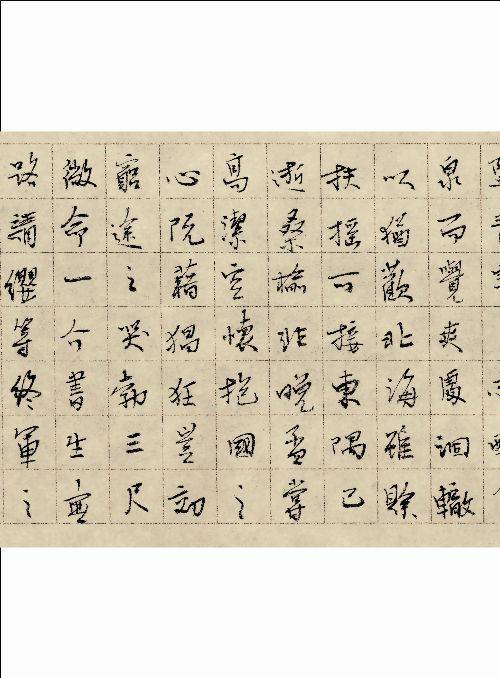 泉而覺爽處涸轍
以猶歡北海雖賒
扶搖可接東隅已
逝桑榆非晚孟嘗
高潔空懷抱國之
心阮籍猖狂豈効
窮途之哭勃三尺
微命一介書生無
路請纓等終軍之